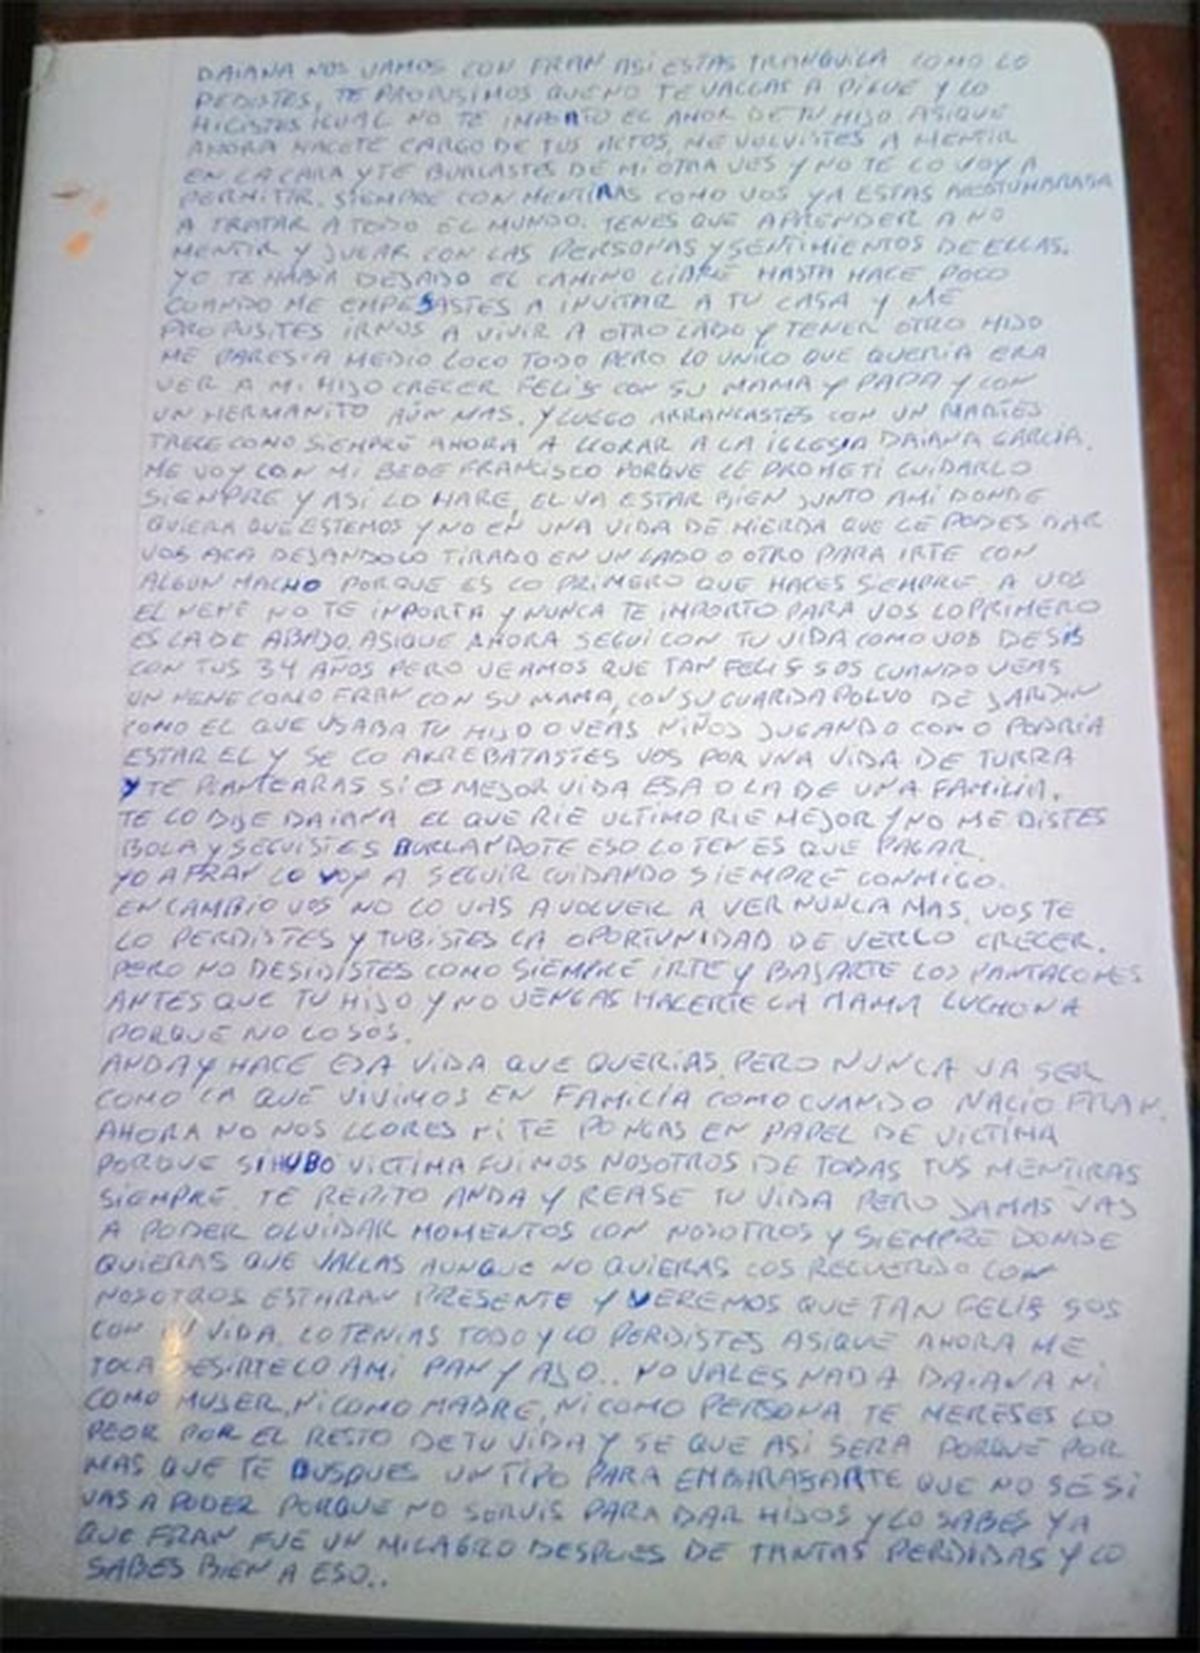 DAIANA NOS VAMOS CON FRAN ASI ESTAS TRANQUILA COMO LO
PEDISTES, TE PROPUSIMOS QUE NO TE VALLAS A PIGUE Y LO
HICISTES IGUAL NO TE IMPORTO EL AMOR DE TU HIJO ASIQUE
AHORA HACETE CARGO DE TUS ACTOS, ME VOLVISTES A MENTIR
EN LA CARA Y TE BURLASTES DE MI OTRA VES Y NO TE LO VOY A
PERMITIR. SIEMPRE CON MENTIRAS COMO VOS YA ESTAS ACOSTUMBRADA
A TRATAR A TODO EL MUNDO. TENES QUE APRENDER A NO
MENTIR Y JUGAR CON LAS PERSONAS Y SENTIMIENTOS DE ELLAS.
YO TE HABIA DEJADO EL CAMINO LIBRE HASTA HACE POCO
CUANDO ME EMPESASTES A INVITAR A TU CASA Y ME
PROPUSITES IRNOS A VIVIR A OTRO LADO Y TENER OTRO HIJO
ME PARESIA MEDIO LOCO TODO PERO LO UNICO QUE QUERIA ERA
VER A MI HIJO CRECER FELIS CON SU MAMA Y PAPA Y CON
UN HERMANITO AÚN MAS. Y LUEGO ARRANCASTES CON UN MARTES
TRECE COMO SIEMPRE AHORA A LLORAR A LA IGLESIA DAIANA GARCIA.
ME VOY CON MI BEBE FRANCISCO PORQUE LE PROMETI CUIDARLO
SIEMPRE Y ASI LO HARE, EL VA ESTAR BIEN JUNTO AMI DONDE
QUIERA QUE ESTEMOS Y NO EN UNA VIDA DE MIERDA QUE LE PODES DAR
VOS ACA DEJANDOLO TIRADO EN UN LADO O OTRO PARA IRTE CON
ALGUN MACHO PORQUE ES LO PRIMERO QUE HACES SIEMPRE A VOS
EL NENE NO TE INPORTA Y NUNCA TE IMPORTO PARA VOS LO PRIMERO
ES LA DE ABAJO. ASIQUE AHORA SEGUI CON TU VIDA COMO VOS DESIS
CON TUS 34 AÑOS PERO VEAMOS QUE TAN FELIS SOS CUANDO VEAS
UN NENE COMO FRAN CON SU MAMA, CON SU GUARDAPOLVO DE JARDIN
COMO EL QUE USABA TU HIJO O VEAS NIÑOS JUGANDO COMO PODRIA
ESTAR EL Y SE LO ARREBATASTES VOS POR UNA VIDA DE TURRA
Y TE PLANTEARAS SI ES MEJOR VIDA ESA O LA DE UNA FAMILIA.
TE LO DIJE DAIANA EL QUE RIE ULTIMO RIE MEJOR Y NO ME DISTES
BOLA Y SEGUISTES BURLANDOTE ESO LO TENES QUE PAGAR.
YO A FRAN LO VOY A SEGUIR CUIDANDO SIEMPRE CONMIGO.
EN CAMBIO VOS NO LO VAS A VOLVER A VER NUNCA MAS. VOS TE
LO PERDISTES Y TUBISTES LA OPORTUNIDAD DE VERLO CRECER.
PERO NO DESIDISTES COMO SIEMPRE IRTE Y BAJARTE LOS PANTALONES
ANTES QUE TU HIJO Y NO VENGAS HACERTE LA MAMA LUCHONA
PORQUE NO LO SOS.
ANDA Y HACE ESA VIDA QUE QUERIAS. PERO NUNCA VA SER
COMO LA QUE VIVIMOS EN FAMILIA COMO CUANDO NACIO FRAN.
AHORA NO NOS LLORES NI TE PONGAS EN PAPEL DE VICTIMA
PORQUE SI HUBO VICTIMA FUIMOS NOSOTROS DE TODAS TUS MENTIRAS
SIEMPRE. TE REPITO ANDA Y REASE TU VIDA PERO JAMAS VAS
A PODER OLVIDAR MOMENTOS CON NOSOTROS Y SIEMPRE DONDE
QUIERAS QUE VALLAS AUNQUE NO QUIERAS LOS RECUERDO CON
NOSOTROS ESTARAN PRESENTE Y VEREMOS QUE TAN FELIS SOS
CON TU VIDA. LO TENIAS TODO Y LO PERDISTES ASIQUE AHORA ME
TOCA DESIRTELO AMI PAN Y AJO.. NO VALES NADA DAIANA NI
COMO MUJER, NI COMO MADRE, NI COMO PERSONA TE MERESES LO
PEOR POR EL RESTO DE TU VIDA Y SE QUE ASI SERA PORQUE POR
MAS QUE TE BUSQUES UN TIPO PARA EMBARASARTE QUE NO SE SI
VAS A PODER PORQUE NO SERVIS PARA DAR HIJOS Y LO SABES YA
QUE FRAN FUE UN MILAGRO DESPUES DE TANTAS PERDIDAS Y LO
SABES BIEN A ESO..